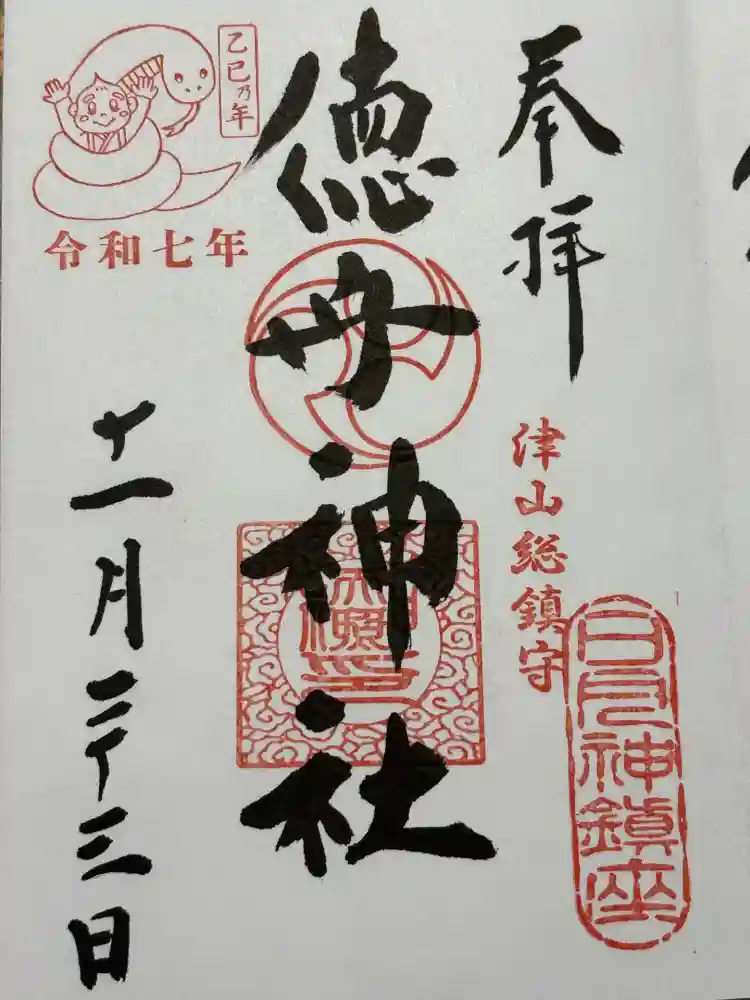 奉拝
津山総鎮守
日月神鎮座
徳守神社
乙巳乃年
令和七年
十一月二十三日